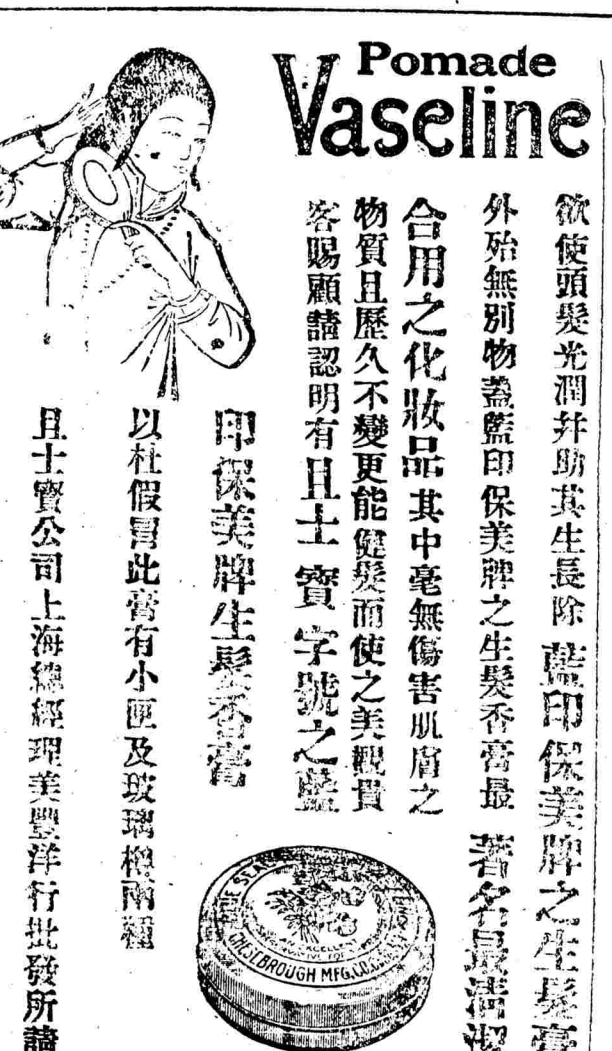 Pomade
Vaseline
欲使頭髮光潤幷助其生長除藍印保美牌之生髮膏
外殆無別物蓋藍印保美牌之生髮香膏最著名最清潔
合用之化妝品其中毫無傷害肌膚之
物質且歷久不變更能健髮而使之美觀貴
客賜顧請認明有且士寶字號之藍
印保美牌生髮香膏
以杜假冒此膏有小匣及玻璃樽兩種
且士寶公司上海總經理美豐洋行批發所請
BLUE SEAL
CHESEBROUGH MFG.CO.